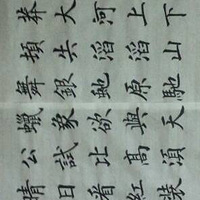 莽大河上下
頓失滔滔山
舞銀蛇原馳
蠟象欲與天
公試比高須
晴日看紅裝